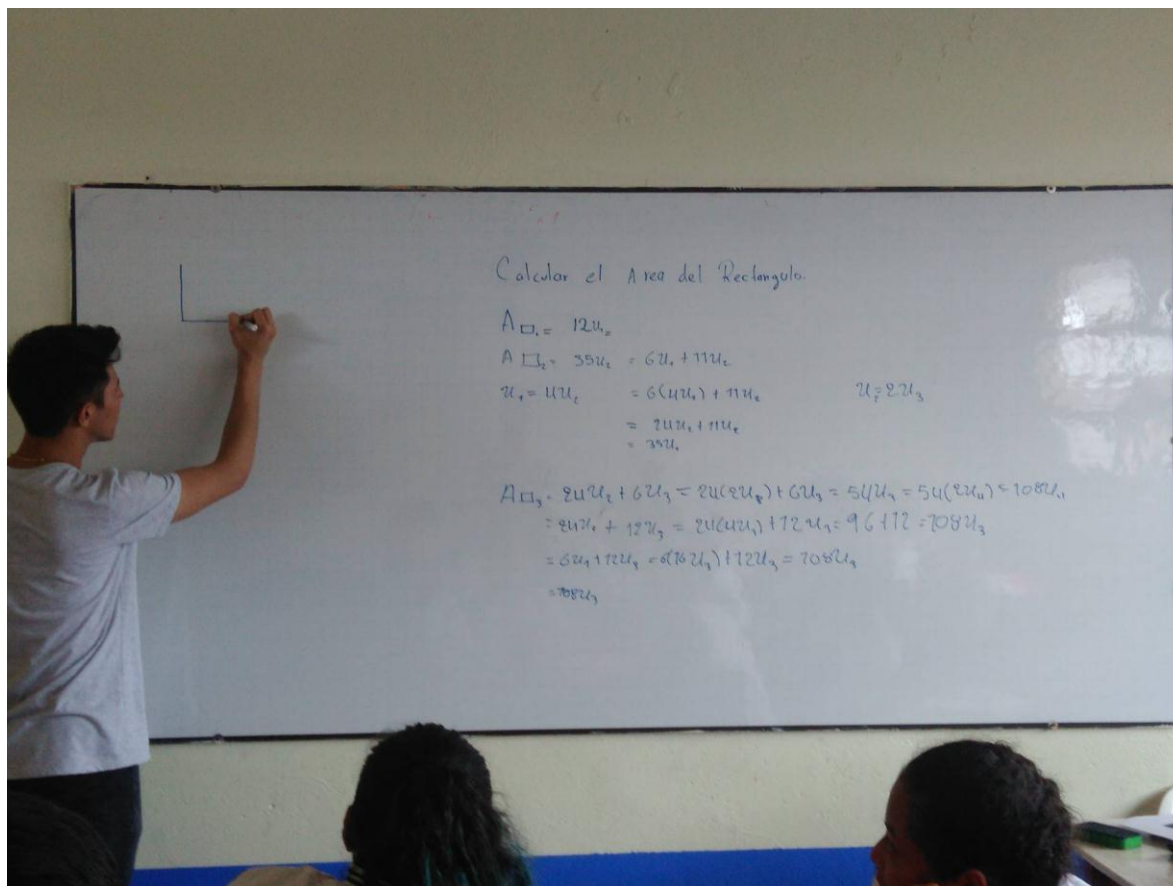 Calcular el Area del Rectangulo.
A▭₁ = 12u₁
A▭₂ = 35u₂ = 6u₁ + 11u₂
u₁ = 4u₂ = 6(4u₂) + 11u₂ u₂=2u₃
= 24u₂ + 11u₂
= 35u₂
A▭₃ = 24u₂ + 6u₃ = 24(2u₃) + 6u₃ = 54u₃ = 54(2u₄) = 108u₄
= 24u₁ + 12u₃ = 24(4u₃) + 12u₃ = 96+12 = 108u₃
= 6u₁ + 12u₃ = 6(16u₃) + 12u₃ = 108u₃
= 108u₃